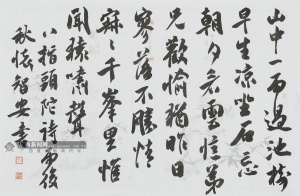 山中一雨過池樹
早生涼坐石忘
朝夕看雲憶弟
兄歡愉猶昨日
寥落不勝情
寂寂千峯裡惟
聞猿嘯聲
八指頭陀詩雨後
秋懷智安書